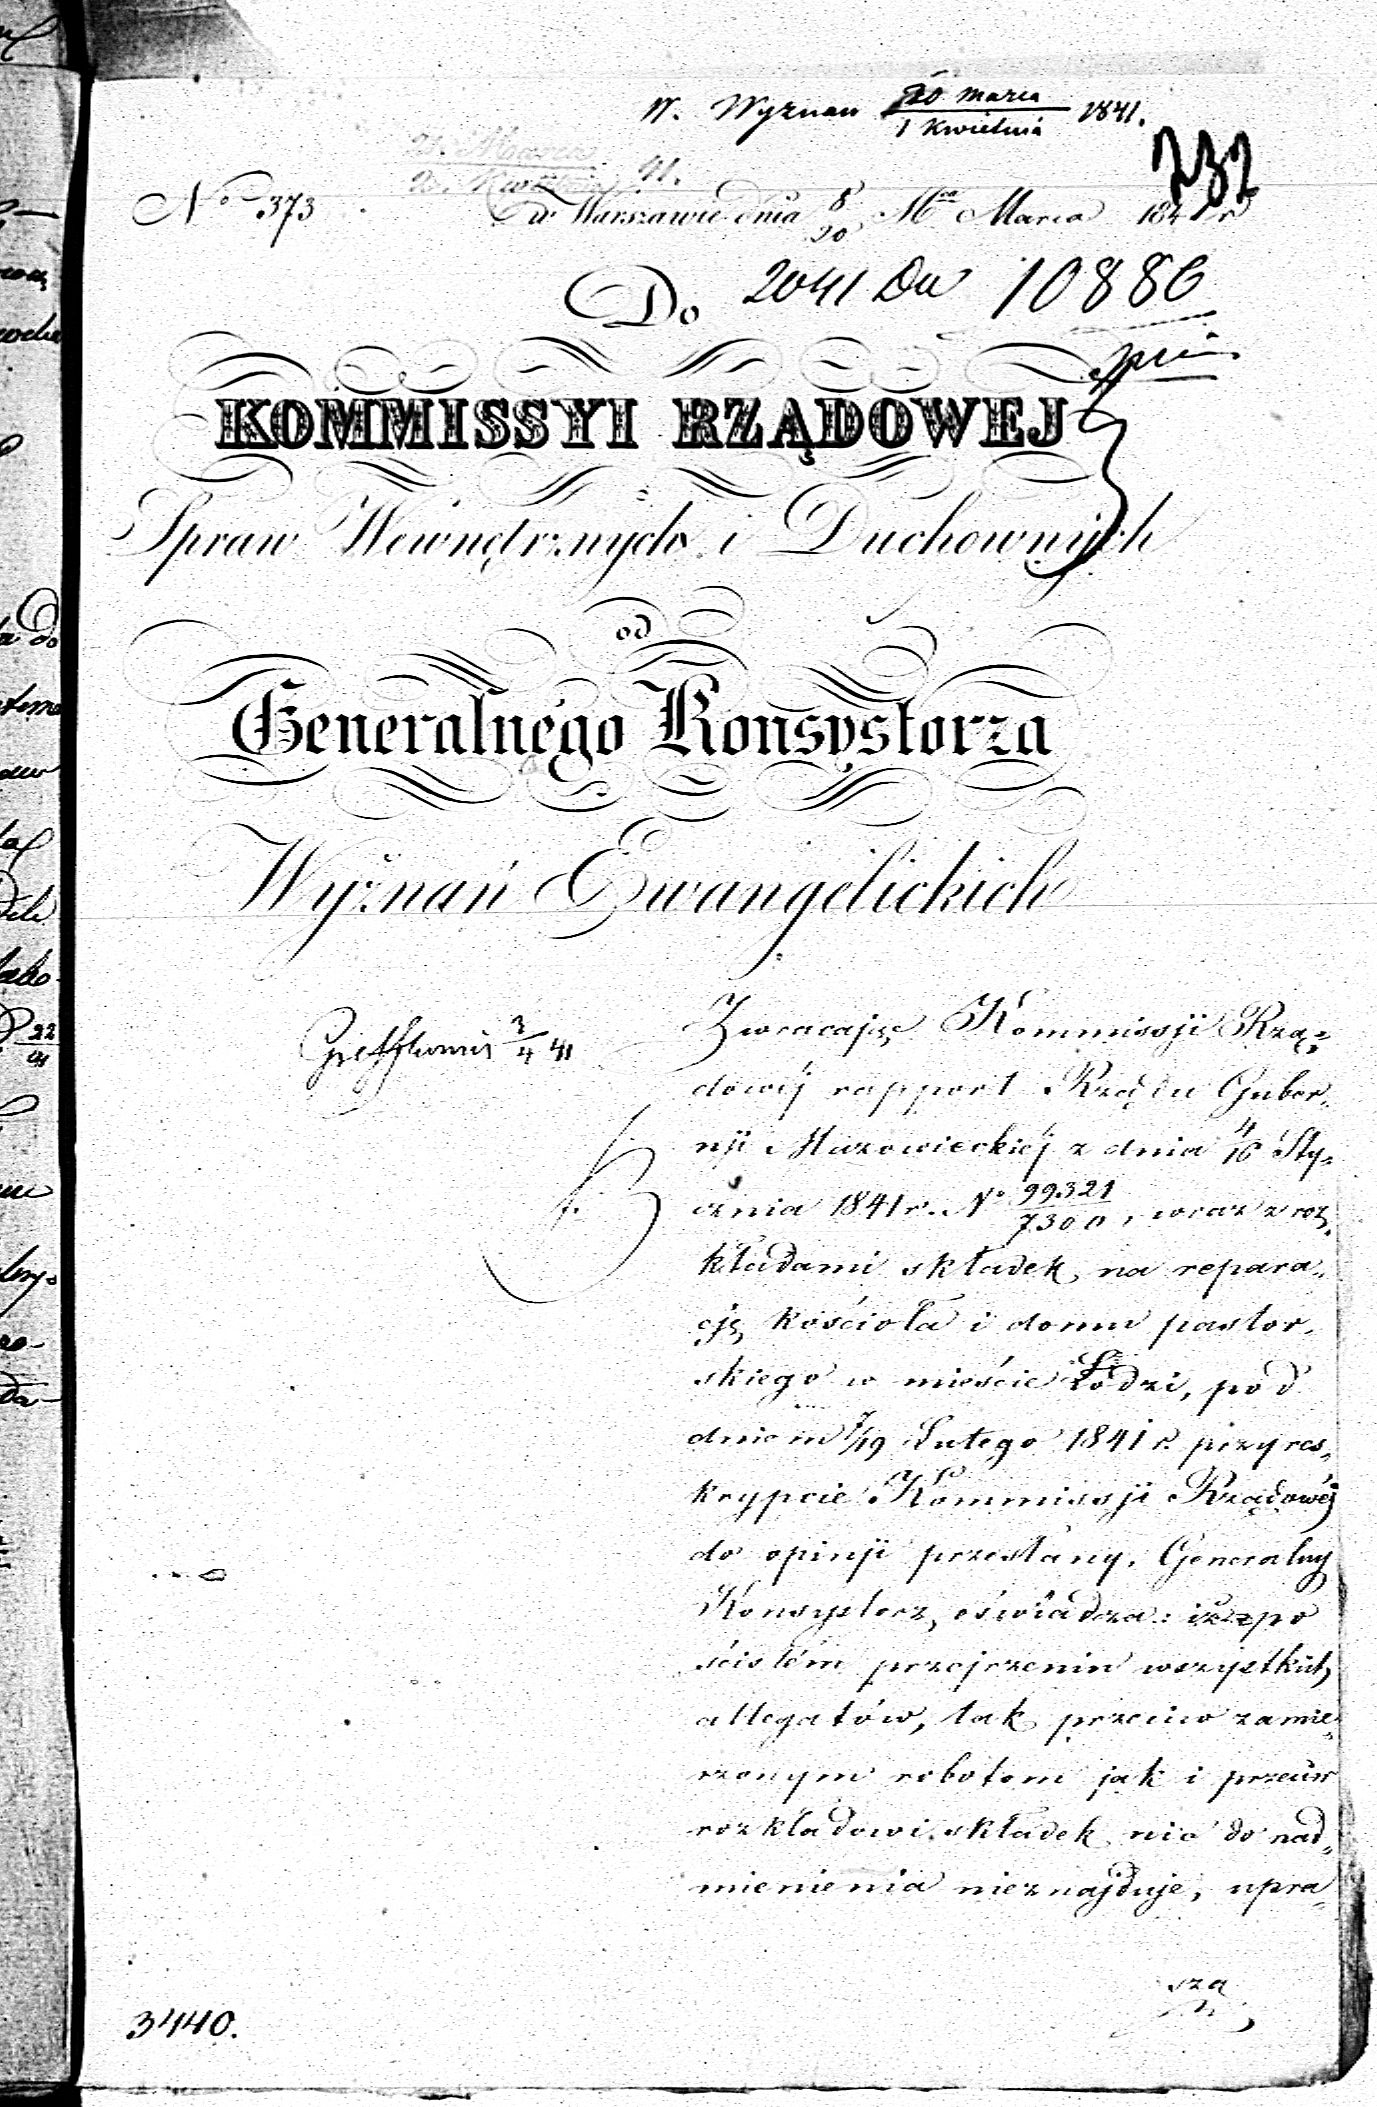 W. Wyznań 20 Marca / 1 Kwietnia 1841.
232
No 373
w Warszawie dnia 8/20 Mca Marca 1841 r
Do 2041 Du 10886
KOMMISSYI RZĄDOWEJ
Spraw Wewnętrznych i Duchownych
od
Generalnego Konsystorza
Wyznań Ewangelickich
3/4 41
Zwracając Kommissji Rzą„
dowéj rapport Rządu Guber„
nji Mazowieckiéj z dnia 4/16 Sty„
cznia 1841 r. No 99321/7300, wraz z roz„
kładami składek, na repara„
cję kościoła i domu pastor„
skiego w mieście Łodzi, pod
dniem 7/19 Lutego 1841 r. przy res„
krypcie Kommissji Rządowéj
do opinji przesłany, Generalny
Konsystorz, oświadcza: iż po
ścisłém przejrzeniu wszystkich
allegatów, tak przeciw zamie„
rzonym robotom jak i przeciw
rozkładowi składek nic do nad„
mienienia nieznajduje, upra„
sza
3440.